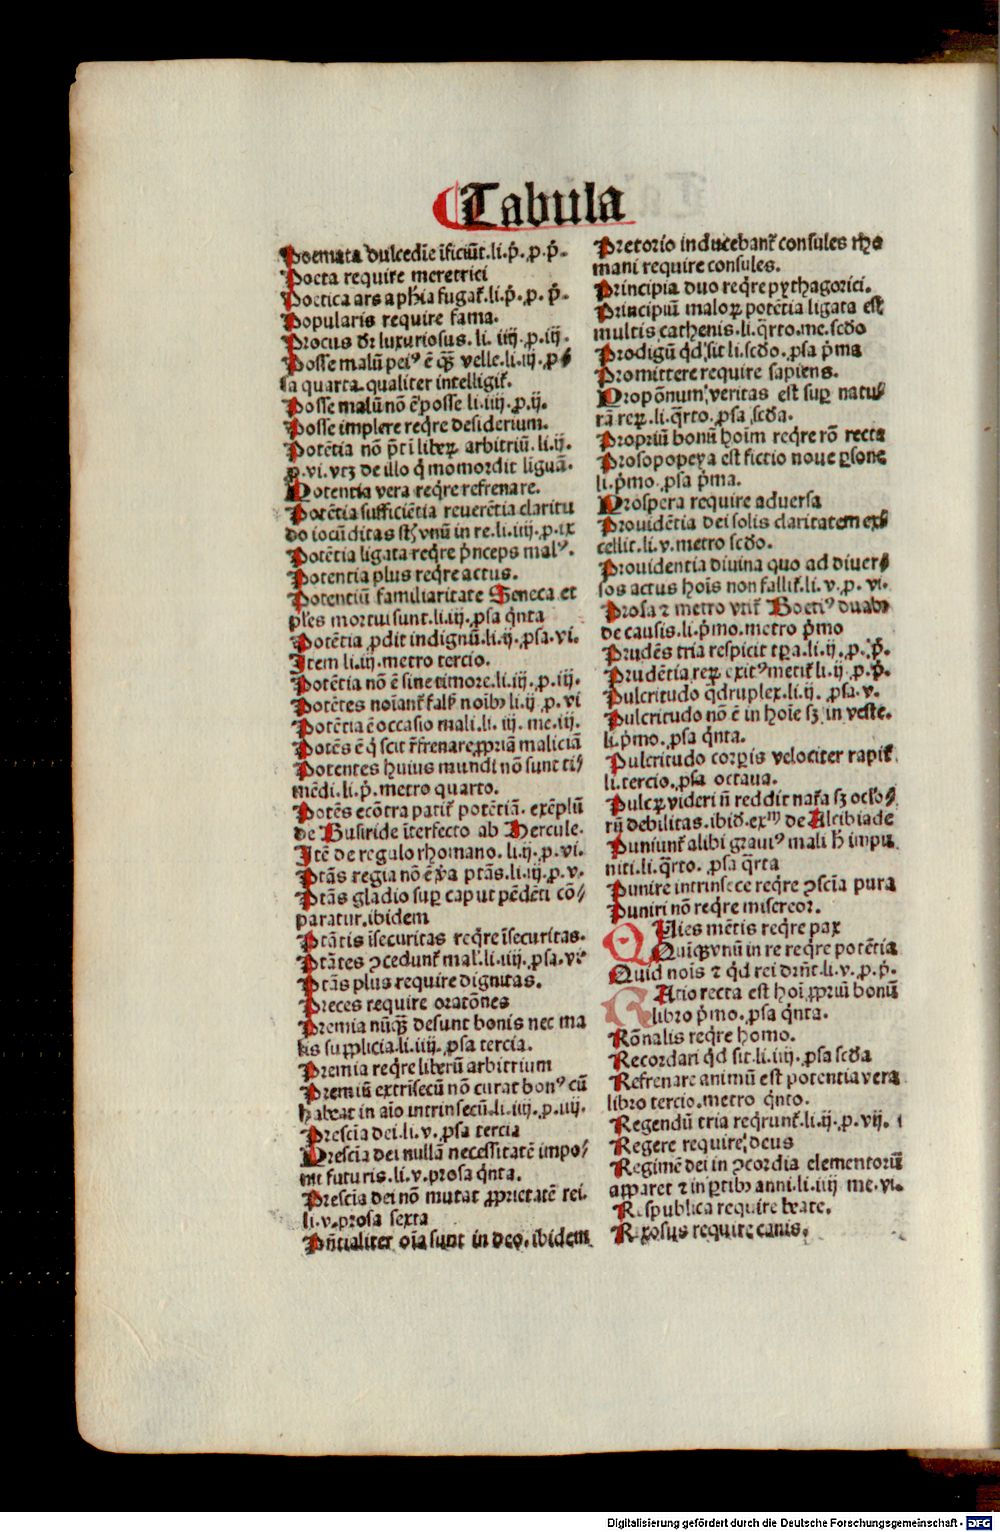 Tabula
Poemata dulcedīe īficiūt.li.p̄.ꝓ.p̄.
Poeta require meretrici
Poetica ars a ph̄ia fugat᷑.li.p̄.ꝓ. p̄.
Popularis require fama.
Procus dr̄ luxuriosus. li. iiij.ꝓ.iij.
Posse malū pei⁹ ē qꝫ̄ velle.li.iij.ꝓ⸗
sa quarta.qualiter intelligit᷑.
Posse malū nō ē posse li.iiij.ꝓ.ij.
Posse implere reqr̄e desiderium.
Potētia nō p̄t ī liberꝝ arbitriū.li.ij.
ꝓ.vi.vtꝫ de illo q̄ momordit liguā.
Potentia vera reqr̄e refrenare.
Potētia sufficiētia reuerētia claritu
do iocūditas st̄ vnū in re.li.iiij.ꝓ.ix
Potētia ligata reqr̄e p̄nceps mal⁹.
Potentia plus reqr̄e actus.
Potentiū familiaritate Seneca et
pl̄es mortui sunt.li.iij.ꝓsa q̄nta
Potētia ꝓdit indignū.li.ij.ꝓsa.vi.
Item li.iij.metro tercio.
Potētia nō ē sine timore.li.iij.ꝓ.iij.
Potētes noīant᷑ fals̄ noībꝫ li.ij ꝓ.vi
Potētia ē occasio mali.li. iij. me.iij.
Potēs ē q̄ scit r̄frenare ꝓpriā maliciā
Potentes huius mundi nō sunt ti⸗
mēdi.li.p̄.metro quarto.
Potēs ecōtra patit᷑ potētiā. exēplū
de Busiride īterfecto ab Hercule.
Itē de regulo rhomano.li.ij.ꝓ.vi.
Ptās regia nō ē v̄a ptās.li.iij.ꝓ.v.
Ptās gladio suꝑ caput pēdēti cō⸗
paratur.ibidem
Ptātis īsecuritas reqr̄e īsecuritas.
Ptātes ꝯcedunt᷑ mal̄.li.iiij.ꝓsa.vi
Ptās plus require dignitas.
Preces require oratōnes
Premia nūqꝫ̄ desunt bonis nec ma
lis supplicia.li.iiij.ꝓsa tercia.
Premia reqr̄e liberū arbitrium
Premiū extrīsecū nō curat bon⁹ cū
habeat in aīo intrinsecū.li.iiij.ꝓ.iiij.
Prescīa dei.li.v.ꝓsa tercia
Prescīa dei nullā necessitatē impo⸗
nit futuris.li.v.prosa q̄nta.
Prescia dei nō mutat ꝓprietatē rei.
li.v.prosa sexta
Pn̄tialiter oīa sunt in deo.ibidem
Pretorio inducebant᷑ consules rho
mani require consules.
Principia duo reqr̄e pythagorici.
Principiū maloꝝ potētia ligata est
multis cathenis.li.q̄rto.me.scd̄o
Prodigū qd̄ sit li.scd̄o.ꝓsa p̄ma
Promittere require sapiens.
Propōnum veritas est suꝑ natu⸗
rā reꝝ.li.q̄rto.ꝓsa scd̄a.
Propriū bonū hoīm reqr̄e rō recta
Prosopopeya est fictio noue ꝑsone
li.p̄mo.ꝓsa p̄ma.
Prospera require aduersa
Prouidētia dei solis claritatem ex⸗
cellit.li.v.metro scd̄o.
Prouidentia diuina quo ad diuer⸗
sos actus hoīs non fallit᷑.li.v.ꝓ.vi.
Prosa ⁊ metro vtit᷑ Boeti⁹ duabꝫ
de causis.li.p̄mo.metro p̄mo
Prudēs tria respicit tꝑa.li.ij.ꝓ.p̄.
Prudētia reꝝ exit⁹ metit᷑ li.ij ꝓ.p̄.
Pulcritudo q̄druplex.li.ij. ꝓsa.v.
Pulcritudo nō ē in hoīe sꝫ in veste.
li.p̄mo.ꝓsa q̄nta.
Pulcritudo corꝑis velociter rapit᷑
li.tercio.ꝓsa octaua.
Pulcꝝ videri n̄ reddit nat̄a sꝫ oclo⸗
rū debilitas.ibid̄.exᵐ de Alcibiade
Puniunt᷑ alibi graui⁹ mali h̄ impu
niti.li.q̄rto. ꝓsa q̄rta
Punire intrinsece reqr̄e ꝯscīa pura
Puniri nō reqr̄e misereor.
QUies mētis reqr̄e pax
Quiqꝫ vnū in re reqr̄e potētia
Quid nois ⁊ qd̄ rei dr̄nt.li.v.ꝓ.p̄.
RAtio recta est hoī ꝓpriū bonū
libro p̄mo.ꝓsa q̄nta.
Rōnalis reqr̄e homo.
Recordari qd̄ sit.li.iiij.ꝓsa scd̄a
Refrenare animū est potentia vera
libro tercio.metro q̄nto.
Regendū tria reqr̄unt᷑.li.ij.ꝓ.vij.
Regere require deus
Regimē dei in ꝯcordia elementorū
apparet ⁊ in ꝑtibꝫ anni.li.iiij me.vi.
Respublica require beate.
Rixosus require canis.
Digitalisierung gefördert durch die Deutsche Forschungsgemeinschaft - DFG